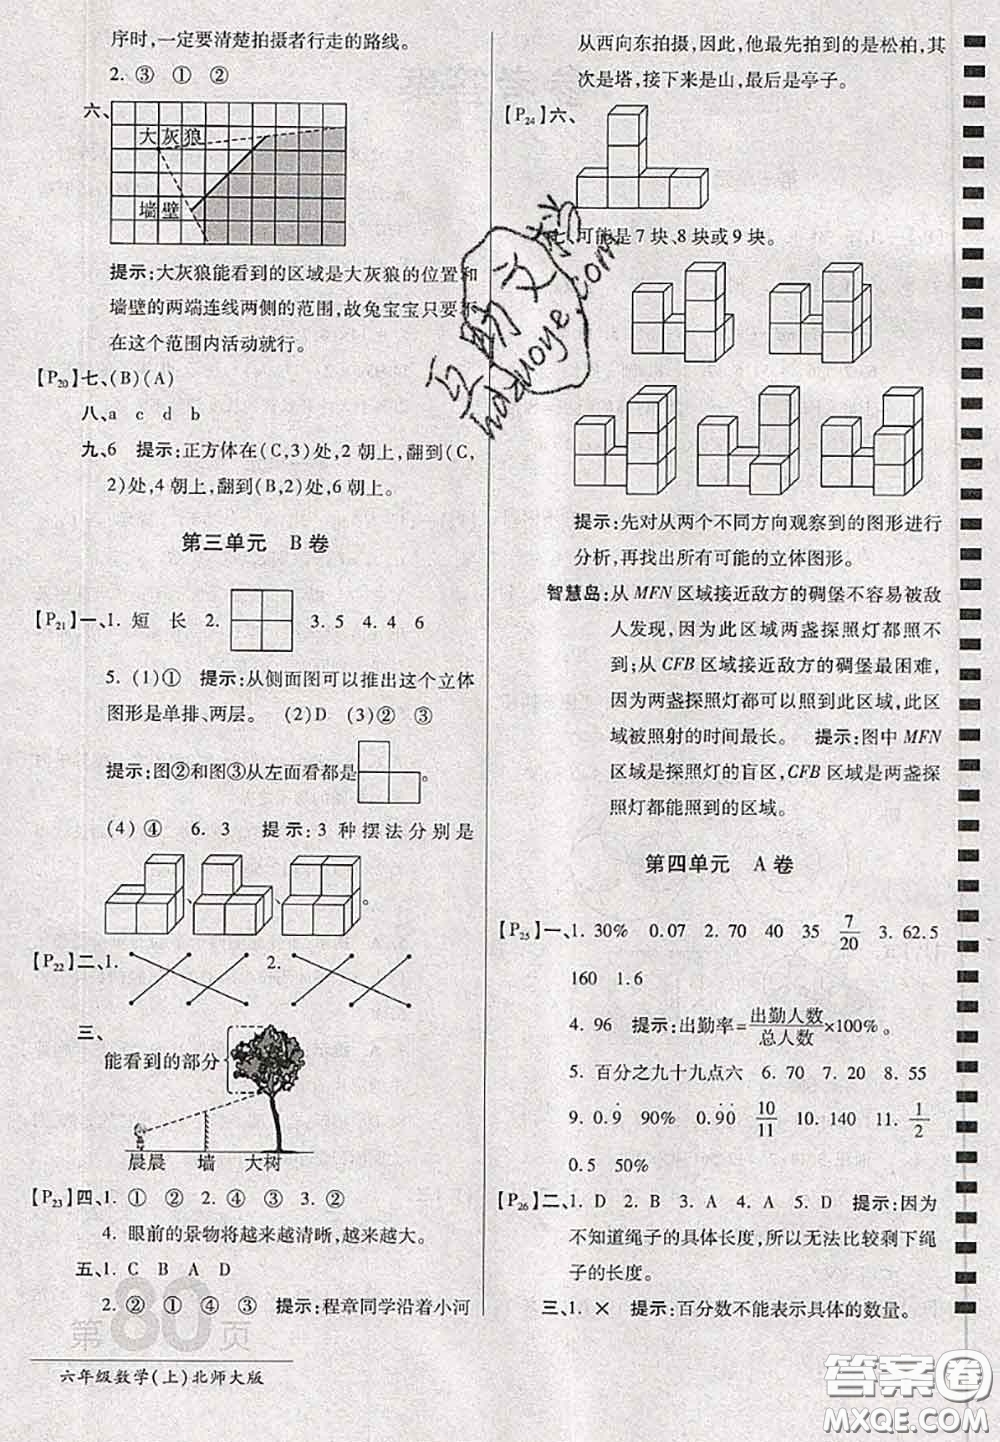 序时,一定要清楚拍摄者行走的路线。
2. ③ ① ②
六、
大灰狼
墙壁
提示:大灰狼能看到的区域是大灰狼的位置和
墙壁的两端连线两侧的范围,故兔宝宝只要不
在这个范围内活动就行。
【P20】七、(B)(A)
八、a c d b
九、6 提示:正方体在(C,3)处,2 朝上,翻到(C,
2)处,4 朝上,翻到(B,2)处,6 朝上。
第三单元 B 卷
【P21】一、1. 短 长 2. 3. 5 4. 4 6
5. (1)① 提示:从侧面图可以推出这个立体
图形是单排、两层。 (2)D (3)② ③
提示:图②和图③从左面看都是 。
(4)④ 6. 3 提示:3 种摆法分别是
、 、 。
【P22】二、1. 2.
三、
能看到的部分
晨晨 墙 大树
【P23】四、1. ① ② 2. ④ ③ 3. ②
4. 眼前的景物将越来越清晰,越来越大。
五、1. C B A D
2. ② ① ③ 提示:程章同学沿着小河
第80页
六年级数学(上)北师大版
从西向东拍摄,因此,他最先拍到的是松柏,其
次是塔,接下来是山,最后是亭子。
【P24】六、
七、可能是 7 块、8 块或 9 块。
提示:先对从两个不同方向观察到的图形进行
分析,再找出所有可能的立体图形。
智慧岛:从 MFN 区域接近敌方的碉堡不容易被敌
人发现,因为此区域两盏探照灯都照不
到;从 CFB 区域接近敌方的碉堡最困难,
因为两盏探照灯都可以照到此区域,此区
域被照射的时间最长。 提示:图中 MFN
区域是探照灯的盲区,CFB 区域是两盏探
照灯都能照到的区域。
第四单元 A 卷
【P25】一、1. 30% 0.07 2. 70 40 35 7/20 3. 62.5
160 1.6
4. 96 提示:出勤率=出勤人数/总人数×100%。
5. 百分之九十九点六 6. 70 7. 20 8. 55
9. 0.9̇ 90% 0.9̇0̇ 10/11 10. 140 11. 1/2
0.5 50%
【P26】二、1. D 2. B 3. A 4. A 5. D 提示:因为
不知道绳子的具体长度,所以无法比较剩下绳
子的长度。
三、1. × 提示:百分数不能表示具体的数量。
互助文学
huzuoye.com
答案圈
MXQE.COM